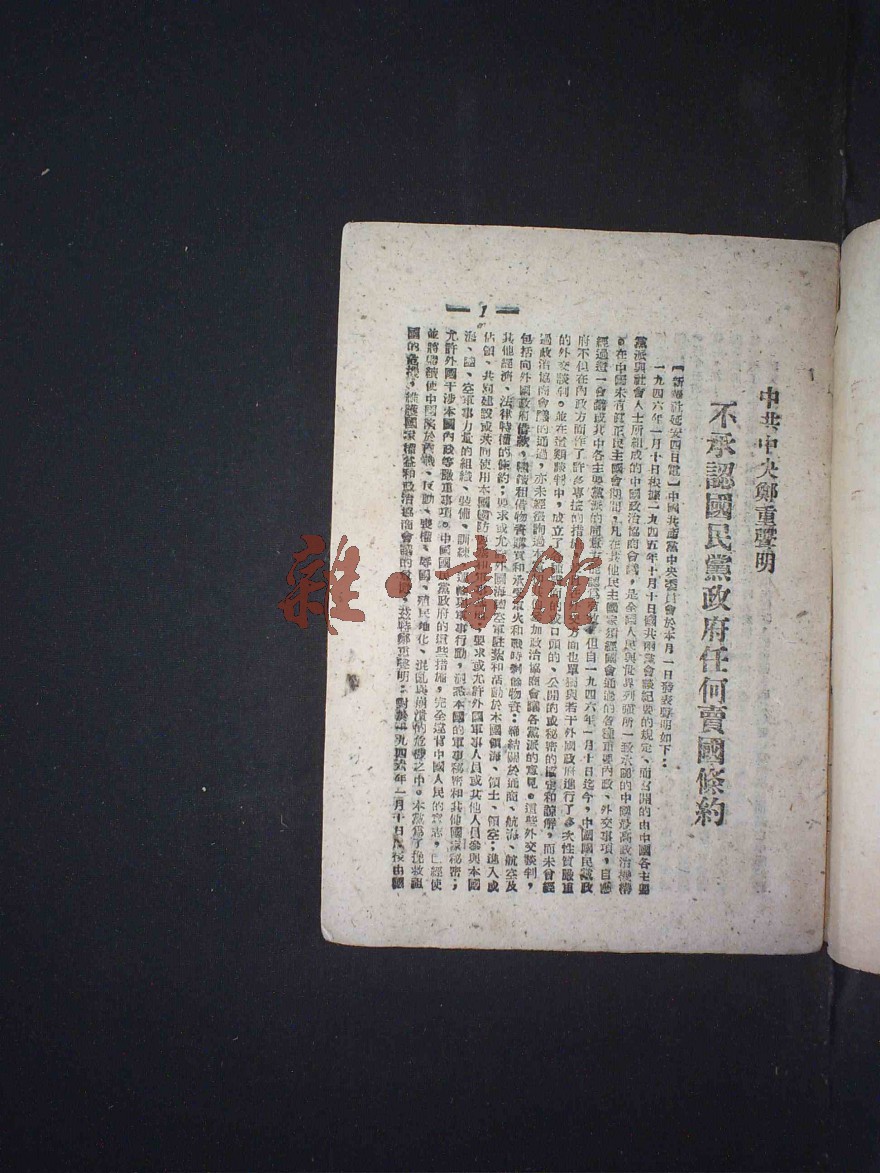 中共中央鄭重聲明
不承認國民黨政府任何賣國條約
【新華社延安四日電】中國共產黨中央委員會於本月一日發表聲明如下：
一九四六年一月十日根據一九四五年十月十日國共兩黨會談紀要的規定、而召開的由中國各主要
黨派與社會人士所組成的中國政治協商會議，是全國人民與世界列強所一致承認的中國最高政治機構
。在中國未有眞正民主國會期間，凡在其他民主國家須經國會通過的各種重要內政、外交事項，自應
經過這一會議或其中各主要黨派的同意方能認爲有效。但自一九四六年一月十日迄今，中國國民黨政
府不但在內政方面作了許多專擅的措施，方面也單獨與若干外國政府進行了多次性質嚴重
的外交談判。並在這類談判中，成立了的或口頭的、公開的或秘密的協定和諒解，而未曾經
過政治協商會議的通過，亦未經徵詢過本加政治協商會議各黨派的意見。這些外交談判，
包括向外國政府借款，賒借和借物資購買和承受軍火和戰時剩餘物資；締結關於通商、航海、航空及
其他經濟、法律特權的條約；要求或允許外國海陸空軍駐紮和活動於本國領海、領土、領空；進入或
佔領、共同建設或共同使用本國國防要求或允許外國軍事人員或其他人員參與本國
海、陸、空軍事力量的組織、裝備、訓練、運輸及軍事行動，洞悉本國的軍事秘密和其他國家秘密；
允許外國干涉本國內政等嚴重事項。中國國民黨政府的這些措施，完全違背中國人民的意志，已經使
並將繼續使中國深於內戰、反動、喪權、辱國、殖民地化、混亂與崩潰的危機之中。本黨爲了挽救祖
國的危機，維護國家權益和政治協商會議的尊嚴，茲特鄭重聲明：對於一九四六年一月十日以後由國
1
雜·書館